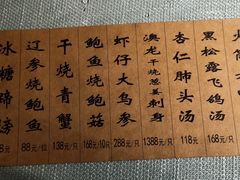 冰糖蹄膀
辽参烧鲍鱼
88元/位
干烧青蟹
138元/只
鲍鱼烧鲍菇
168元/10只
虾仔大乌参
288元/只
澳龙干烧葱姜刺身
1388元/只
杏仁肺头汤
118元
黑松露飞鸽汤
168元